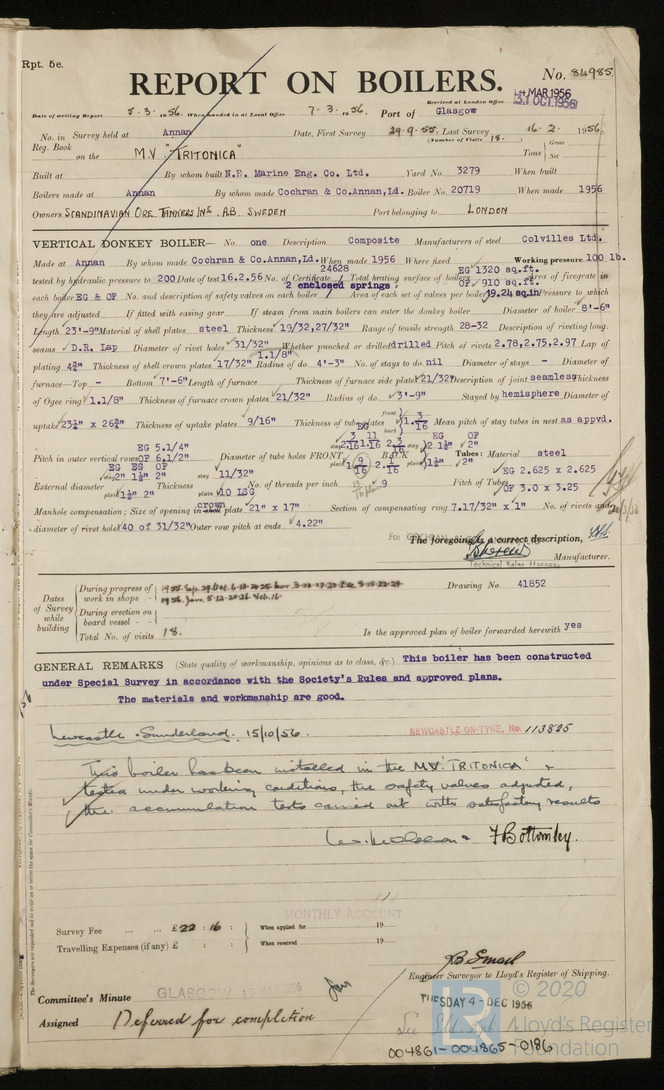 Rpt. 5e.
REPORT ON BOILERS.
No. 84985
MAR 1956
31 OCT 1956
Received at London Office
Date of writing Report 5.3.1956. When handed in at Local Office 7.3.1956. Port of Glasgow
No. in Survey held at Annan Date, First Survey 29.9.55. Last Survey 16.2.1956
Reg. Book (Number of Visits 18.
on the M.V. "TRITONICA" Tons Gross Net
Built at By whom built N.E. Marine Eng. Co. Ltd. Yard No. 3279 When built
Boilers made at Annan By whom made Cochran & Co.Annan,Ld. Boiler No. 20719 When made 1956
Owners SCANDINAVIAN ORE TANKERS INC. AB. SWEDEN Port belonging to LONDON
VERTICAL DONKEY BOILER— No. one Description Composite Manufacturers of steel Colvilles Ltd.
Made at Annan By whom made Cochran & Co.Annan,Ld. When made 1956 Where fixed Working pressure 100 lb.
tested by hydraulic pressure to 200 Date of test 16.2.56 No. of Certificate 24628 Total heating surface of boilers EG 1320 sq.ft. OF 910 sq.ft. Area of firegrate in
each boiler EG & OF No. and description of safety valves on each boiler 2 enclosed springs Area of each set of valves per boiler 19.24 sq.in Pressure to which
they are adjusted If fitted with easing gear If steam from main boilers can enter the donkey boiler Diameter of boiler 8'-6"
Length 23'-9" Material of shell plates steel Thickness 19/32,27/32" Range of tensile strength 28-32 Description of riveting long.
seams D.R. Lap Diameter of rivet holes 31/32" 1.1/8" Whether punched or drilled drilled Pitch of rivets 2.78,2.75,2.97 Lap of
plating 4¾" Thickness of shell crown plates 17/32" Radius of do. 4'-3" No. of stays to do. nil Diameter of stays - Diameter of
furnace—Top - Bottom 7'-6" Length of furnace Thickness of furnace side plates 21/32" Description of joint seamless Thickness
of Ogee ring 1.1/8" Thickness of furnace crown plates 21/32" Radius of do. 3'-9" Stayed by hemisphere Diameter of
uptake 23½" x 26¾" Thickness of uptake plates 9/16" Thickness of tube plates front back Mean pitch of stay tubes in nest as appvd.
Pitch in outer vertical rows EG 5.1/4" OF 6.1/2" Diameter of tube holes FRONT BACK Tubes: Material steel
External diameter Thickness stay 11/32" plain 10 LSG No. of threads per inch 9 Pitch of Tubes EG 2.625 x 2.625 OF 3.0 x 3.25
Manhole compensation: Size of opening in crown plate 21" x 17" Section of compensating ring 7.17/32" x 1" No. of rivets and
diameter of rivet holes 40 of 31/32" Outer row pitch at ends 4.22"
The foregoing is a correct description,
Manufacturer.
Dates of Survey while building
During progress of work in shops
During erection on board vessel
Total No. of visits 18.
Drawing No. 41852
Is the approved plan of boiler forwarded herewith yes
GENERAL REMARKS (State quality of workmanship, opinions as to class, &c.) This boiler has been constructed
under Special Survey in accordance with the Society's Rules and approved plans.
The materials and workmanship are good.
Newcastle - Sunderland. 15/10/56. NEWCASTLE-ON-TYNE, No. 113825
This boiler has been installed in the M.V. 'TRITONICA' &
tested under working conditions, the safety valves adjusted,
the accumulation tests carried out with satisfactory results
F Bottomley.
MONTHLY ACCOUNT
Survey Fee ... ... £22 : 16 : When applied for 19
Travelling Expenses (if any) £ : : When received 19
Engineer Surveyor to Lloyd's Register of Shipping.
Committee's Minute GLASGOW 13 MAR 1956
TUESDAY 4 - DEC 1956
Assigned Deferred for completion
© 2020
Lloyd's Register
Foundation
004861-004865-0186